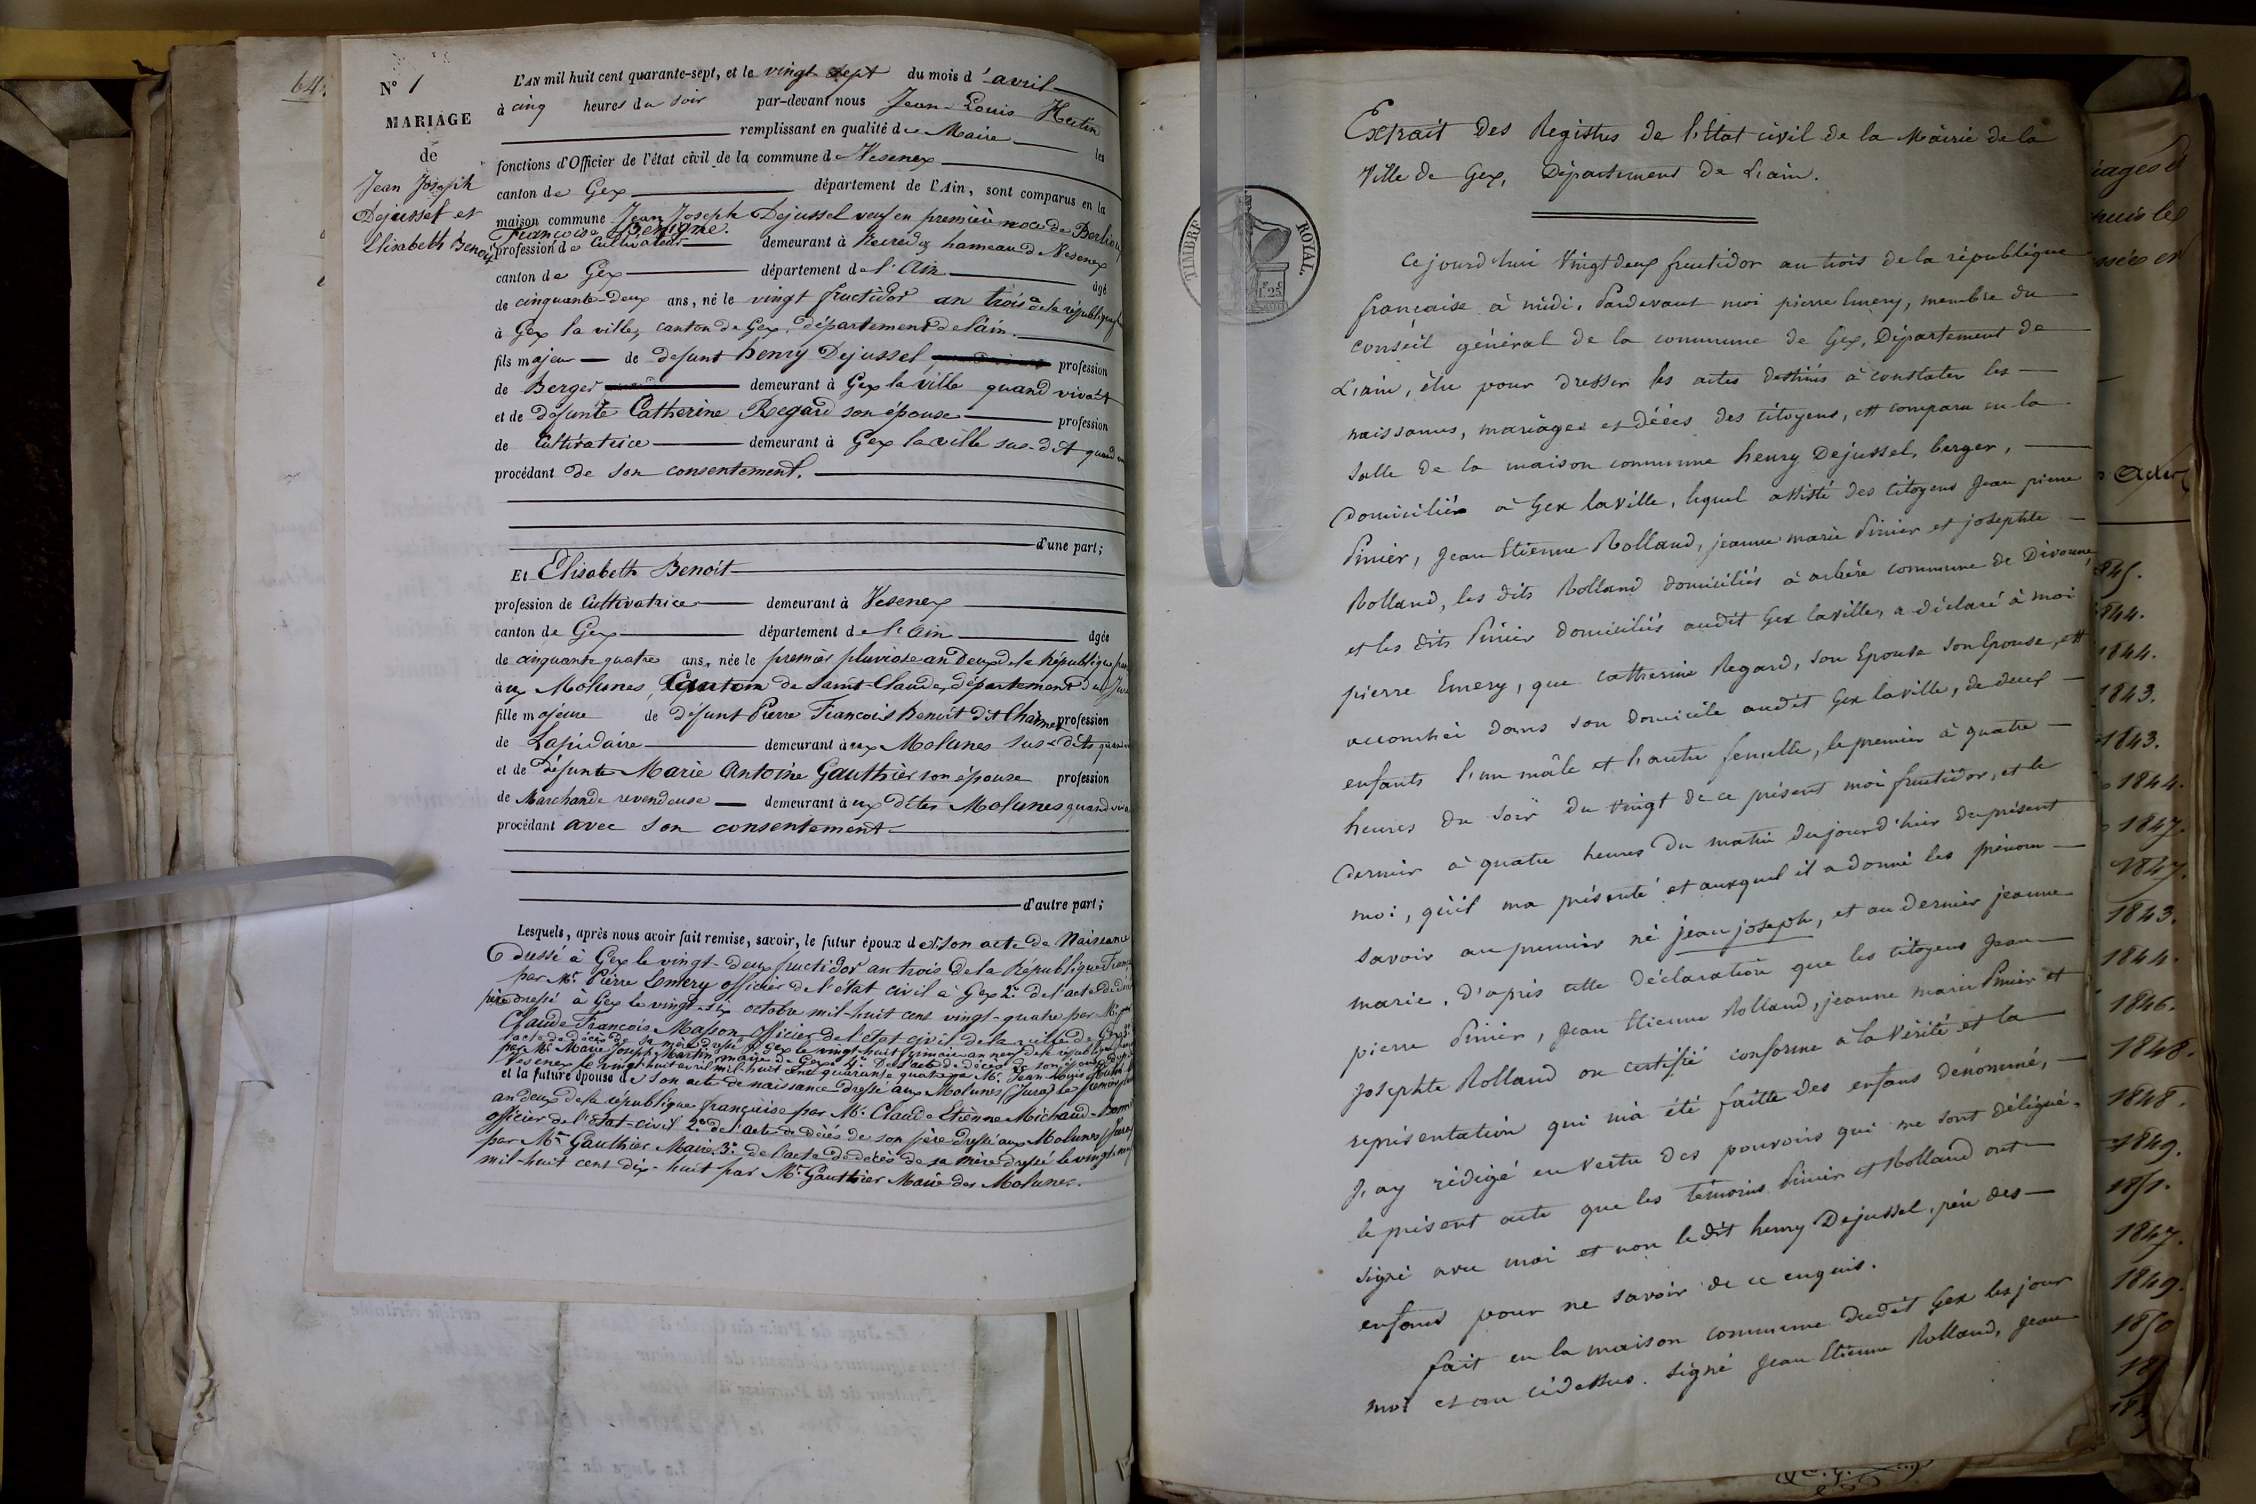 64
N° 1
MARIAGE
de
Jean Joseph
Dejussel et
Elisabeth Benoit
L'AN mil huit cent quarante-sept, et le vingt sept du mois d'avril
à cinq heures du soir par-devant nous Jean-Louis Hutin
remplissant en qualité de Maire les
fonctions d'Officier de l'état civil de la commune de Vesenex
canton de Gex département de l'Ain, sont comparus en la
maison commune Jean Joseph Dejussel veuf en première noce de
Françoise Benigne.
profession de Cultivateur demeurant à hameau de Vesenex
canton de Gex département de l'Ain âgé
de cinquante-deux ans, né le vingt fructidor an trois de la république
à Gex la ville, canton de Gex, département de l'ain.
fils majeur de defunt henry Dejussel, profession
de Berger demeurant à Gex la ville quand vivait
et de défunte Catherine Regard son épouse profession
de Cultivatrice demeurant à Gex la ville sus-dit quand
procédant de son consentement.
d'une part;
Et Elisabeth Benoit
profession de Cultivatrice demeurant à Vesenex
canton de Gex département de l'Ain âgée
de cinquante quatre ans, née le premier pluviose an Deux de la République
à ux Molunes, Canton de Saint-Claude, département du Jura
fille majeure de défunt Pierre François Benoit dit profession
de Lapidaire demeurant à ux Molunes sus-dits
et de défunte Marie Antoine Gauthier son épouse profession
de Marchande revendeuse demeurant à ux dites Molunes quand
procédant avec son consentement
d'autre part;
Lesquels, après nous avoir fait remise, savoir, le futur époux de 1° son acte de Naissance
Dressé à Gex le vingt-deux fructidor an trois de la République
par Mr. Pierre Emery officier de l'état civil à Gex 2° de l'acte de
père dressé à Gex le vingt-six octobre mil-huit cent vingt-quatre par Mr.
Claude François Masson officier de l'état civil de la ville de Gex 3°
l'acte de décès de sa mère dressé à Gex le vingt-huit an neuf de la république
par Mr. Marie Joseph Martin, maire de Gex 4° De l'acte de décès de son épouse
Vesenex le vingt-huit avril mil-huit cent quarante quatre par Mr. Jean Louis
et la future épouse de son acte de naissance dressé aux Molunes (Jura) le premier
an deux de la république française par Mr. Claude Etienne Michaud
officier de l'état-civil 2° de l'acte de décès de son père dressé aux Molunes (Jura)
par Mr. Gauthier Maire 3° de l'acte de décès de sa mère dressé le vingt
mil-huit cent dix-huit par Mr. Gauthier Maire des Molunes.
TIMBRE ROYAL.
Extrait des Registres de l'État civil de la Mairie de la
Ville de Gex, Département de L'ain.
Cejourd'hui Vingt deux fructidor an trois de la république
française à midi, Pardevant moi pierre Emery, membre du
conseil général de la commune de Gex, Département de
L'ain, élu pour dresser les actes destinés à constater les
naissances, mariages et décès des citoyens, est comparu en la
salle de la maison commune henry Dejussel, berger,
domicilié à Gex laville, lequel assisté des citoyens Jean pierre
Pinier, Jean Etienne Rolland, jeanne marie Pinier et josephte
Rolland, les dits Rolland domiciliés à arbère commune de Divonne,
et les dits Pinier domiciliés audit Gex laville, a déclaré à moi
pierre Emery, que catherine Regard, son Epouse son Epouse, est
accouchée dans son domicile audit Gex laville, de deux
enfants l'un mâle et l'autre femelle, le premier à quatre
heures du soir du vingt de ce présent moi fructidor, et le
dernier à quatre heures du matin du jourd'hui du présent
moi, qu'il ma présenté et auxquel il a donné les prénom
savoir au premier né jean joseph, et au dernier jeanne
marie, d'après cette déclaration que les citoyens Jean
pierre Pinier, Jean Etienne Rolland, jeanne marie Pinier et
Josephte Rolland on certifié conforme à la vérité et la
représentation qui m'a été faitte des enfans dénommé,
J'ay rédigé en vertu des pouvoirs qui me sont délégué
le présent acte que les témoins Pinier et Rolland ont
signé avec moi et non le dit henry Dejussel, père des
enfans pour ne savoir de ce enquis.
fait en la maison commune dudit Gex les jour
moi et an cidessus. signé Jean Etienne Rolland, Jean
1844.
1844.
1843.
1843.
1844.
1847.
1847.
1843.
1844.
1846.
1848.
1848.
1849.
1851.
1847.
1849.
1850